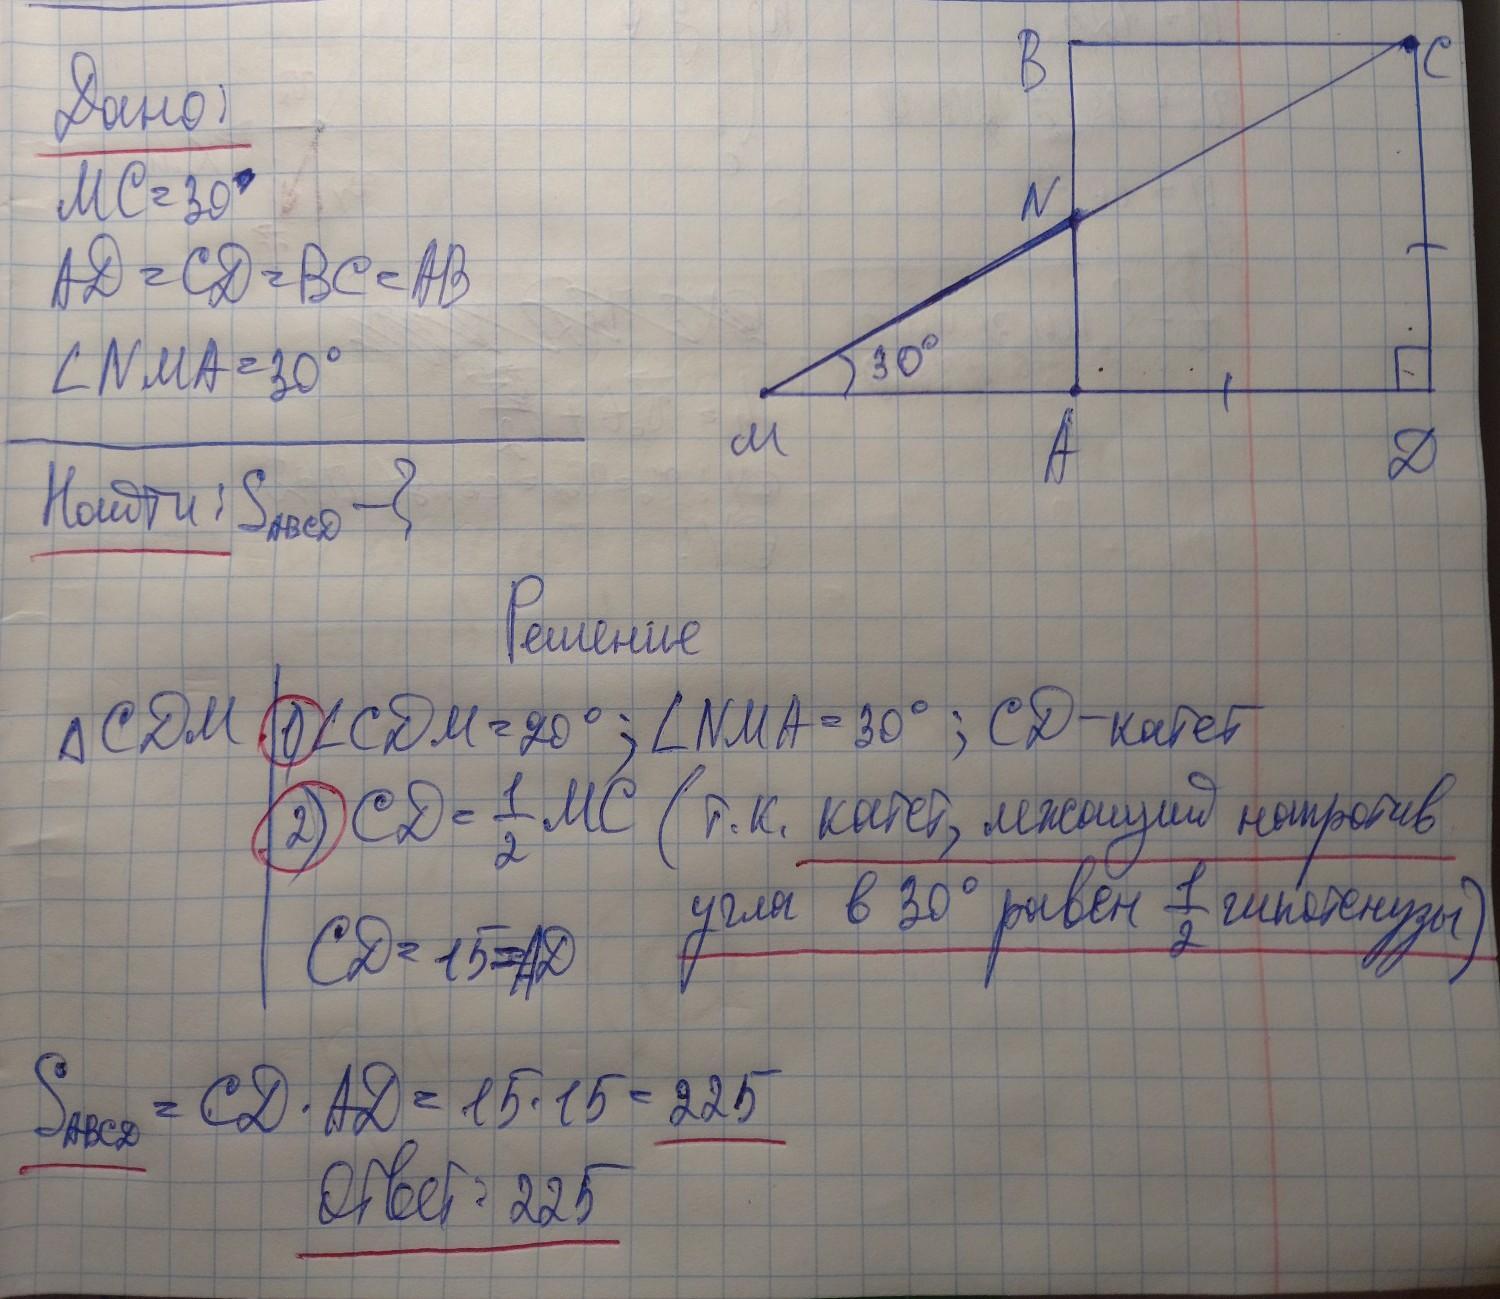 Дано:
MC=30
AD=CD=BC=AB
∠NMA=30°
Найти: S ABCD -?
B
C
N
30°
M
A
D
Решение
△CDM
1) ∠CDM=90°; ∠NMA=30°; CD-катет
2) CD=1/2 MC (т.к. катет, лежащий напротив
угла в 30° равен 1/2 гипотенузы)
CD=15=AD
S ABCD = CD·AD=15·15=225
Ответ: 225